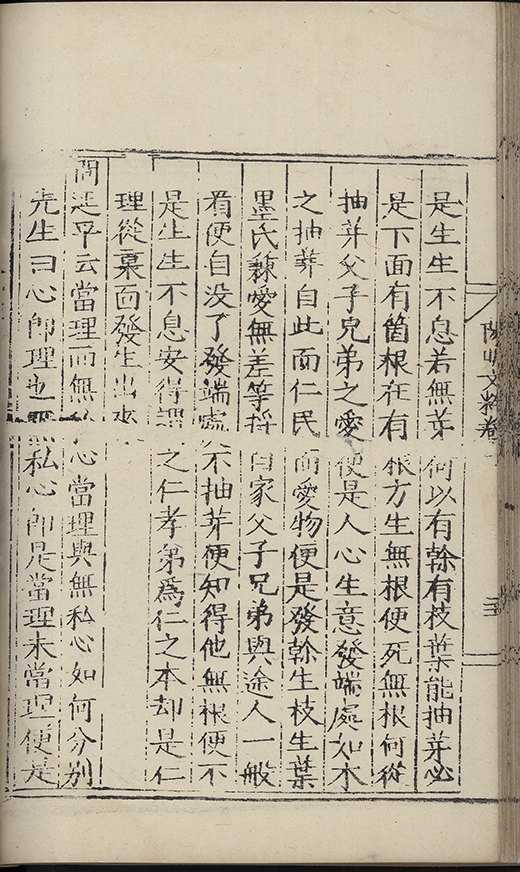 陽明文粹卷
是生生不息若無芽何以有榦有枝葉能抽芽必
是下面有箇根在有根方生無根便死無根何從
抽芽父子兄弟之愛便是人心生意發端處如木
之抽芽自此而仁民而愛物便是發榦生枝生葉
墨氏兼愛無差等將自家父子兄弟與途人一般
看便自没了發端處不抽芽便知得他無根便不
是生生不息安得謂之仁孝弟爲仁之本却是仁
理從裏面發生出來
問延平云當理而無私心當理與無私心如何分別
先生曰心即理也無私心即是當理未當理便是